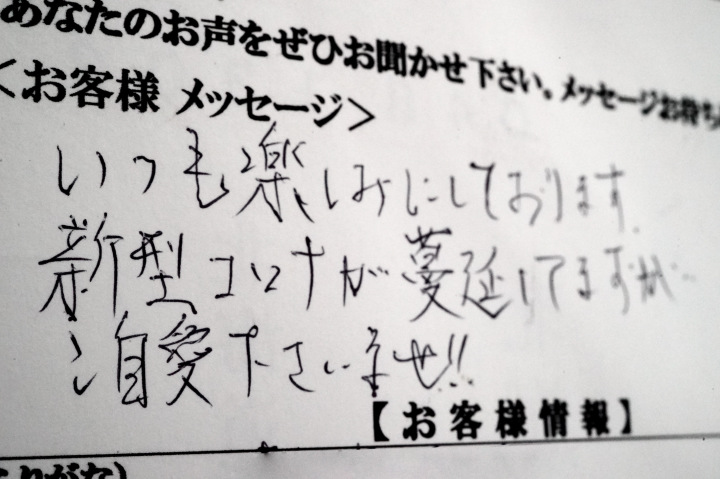 あなたのお声をぜひお聞かせ下さい。メッセージお待ち
＜お客様 メッセージ＞
いつも楽しみにしております
新型コロナが蔓延してますが
ご自愛下さいませ!!
【お客様情報】
りがな)